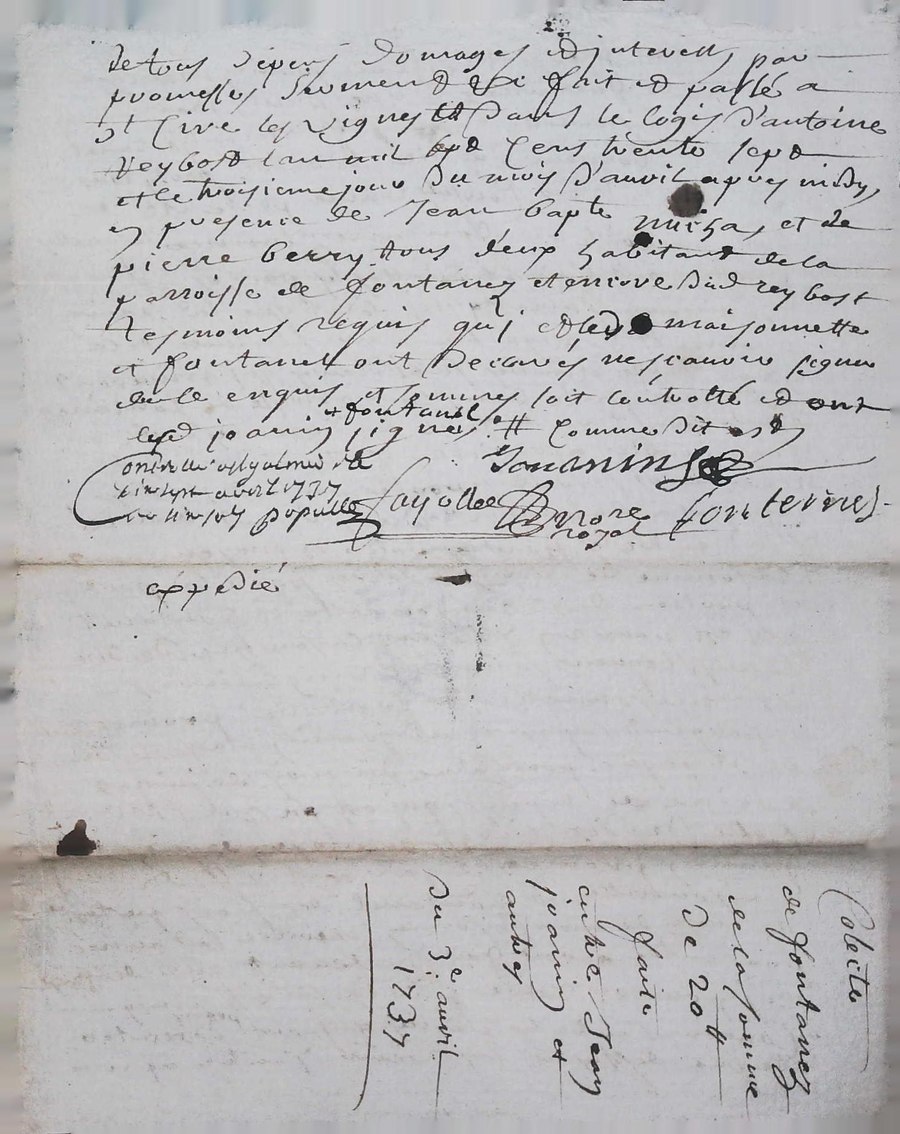 de tous dépens domages et interests par
promesses serment &c fait et passé a
st Cire les Vignes dans le logis d'antoine
Reybost l'an mil sept Cens trente sept
et le troisieme jour du mois d'avril apres midy,
en presence de Jean bapte micha, et de
pierre berry tous deux habitant de la
parroisse de fontanes et encore dud reybost
tesmoins requis qui et led maisonnette
et fontanel ont declarés ne scavoir signer
de ce enquis et sommes soit controllé et ont
lesd joanin + fontanel signés # Comme dit est
Controllé a stgalmier le
avril 1737
Jouanin
fayolle
nore
royal
expedié
Colecte
de fontanes
de la somme
de 20 ₶
faite
entre Jean
joanin et
autres
Du 3e avril
1737